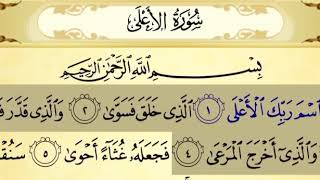 سُورَةُ الأَعْلَى
بِسْمِ اللَّهِ الرَّحْمَٰنِ الرَّحِيمِ
اسْمَ رَبِّكَ الْأَعْلَى ١ الَّذِي خَلَقَ فَسَوَّىٰ ٢ وَالَّذِي قَدَّرَ
وَالَّذِي أَخْرَجَ الْمَرْعَىٰ ٤ فَجَعَلَهُ غُثَاءً أَحْوَىٰ ٥